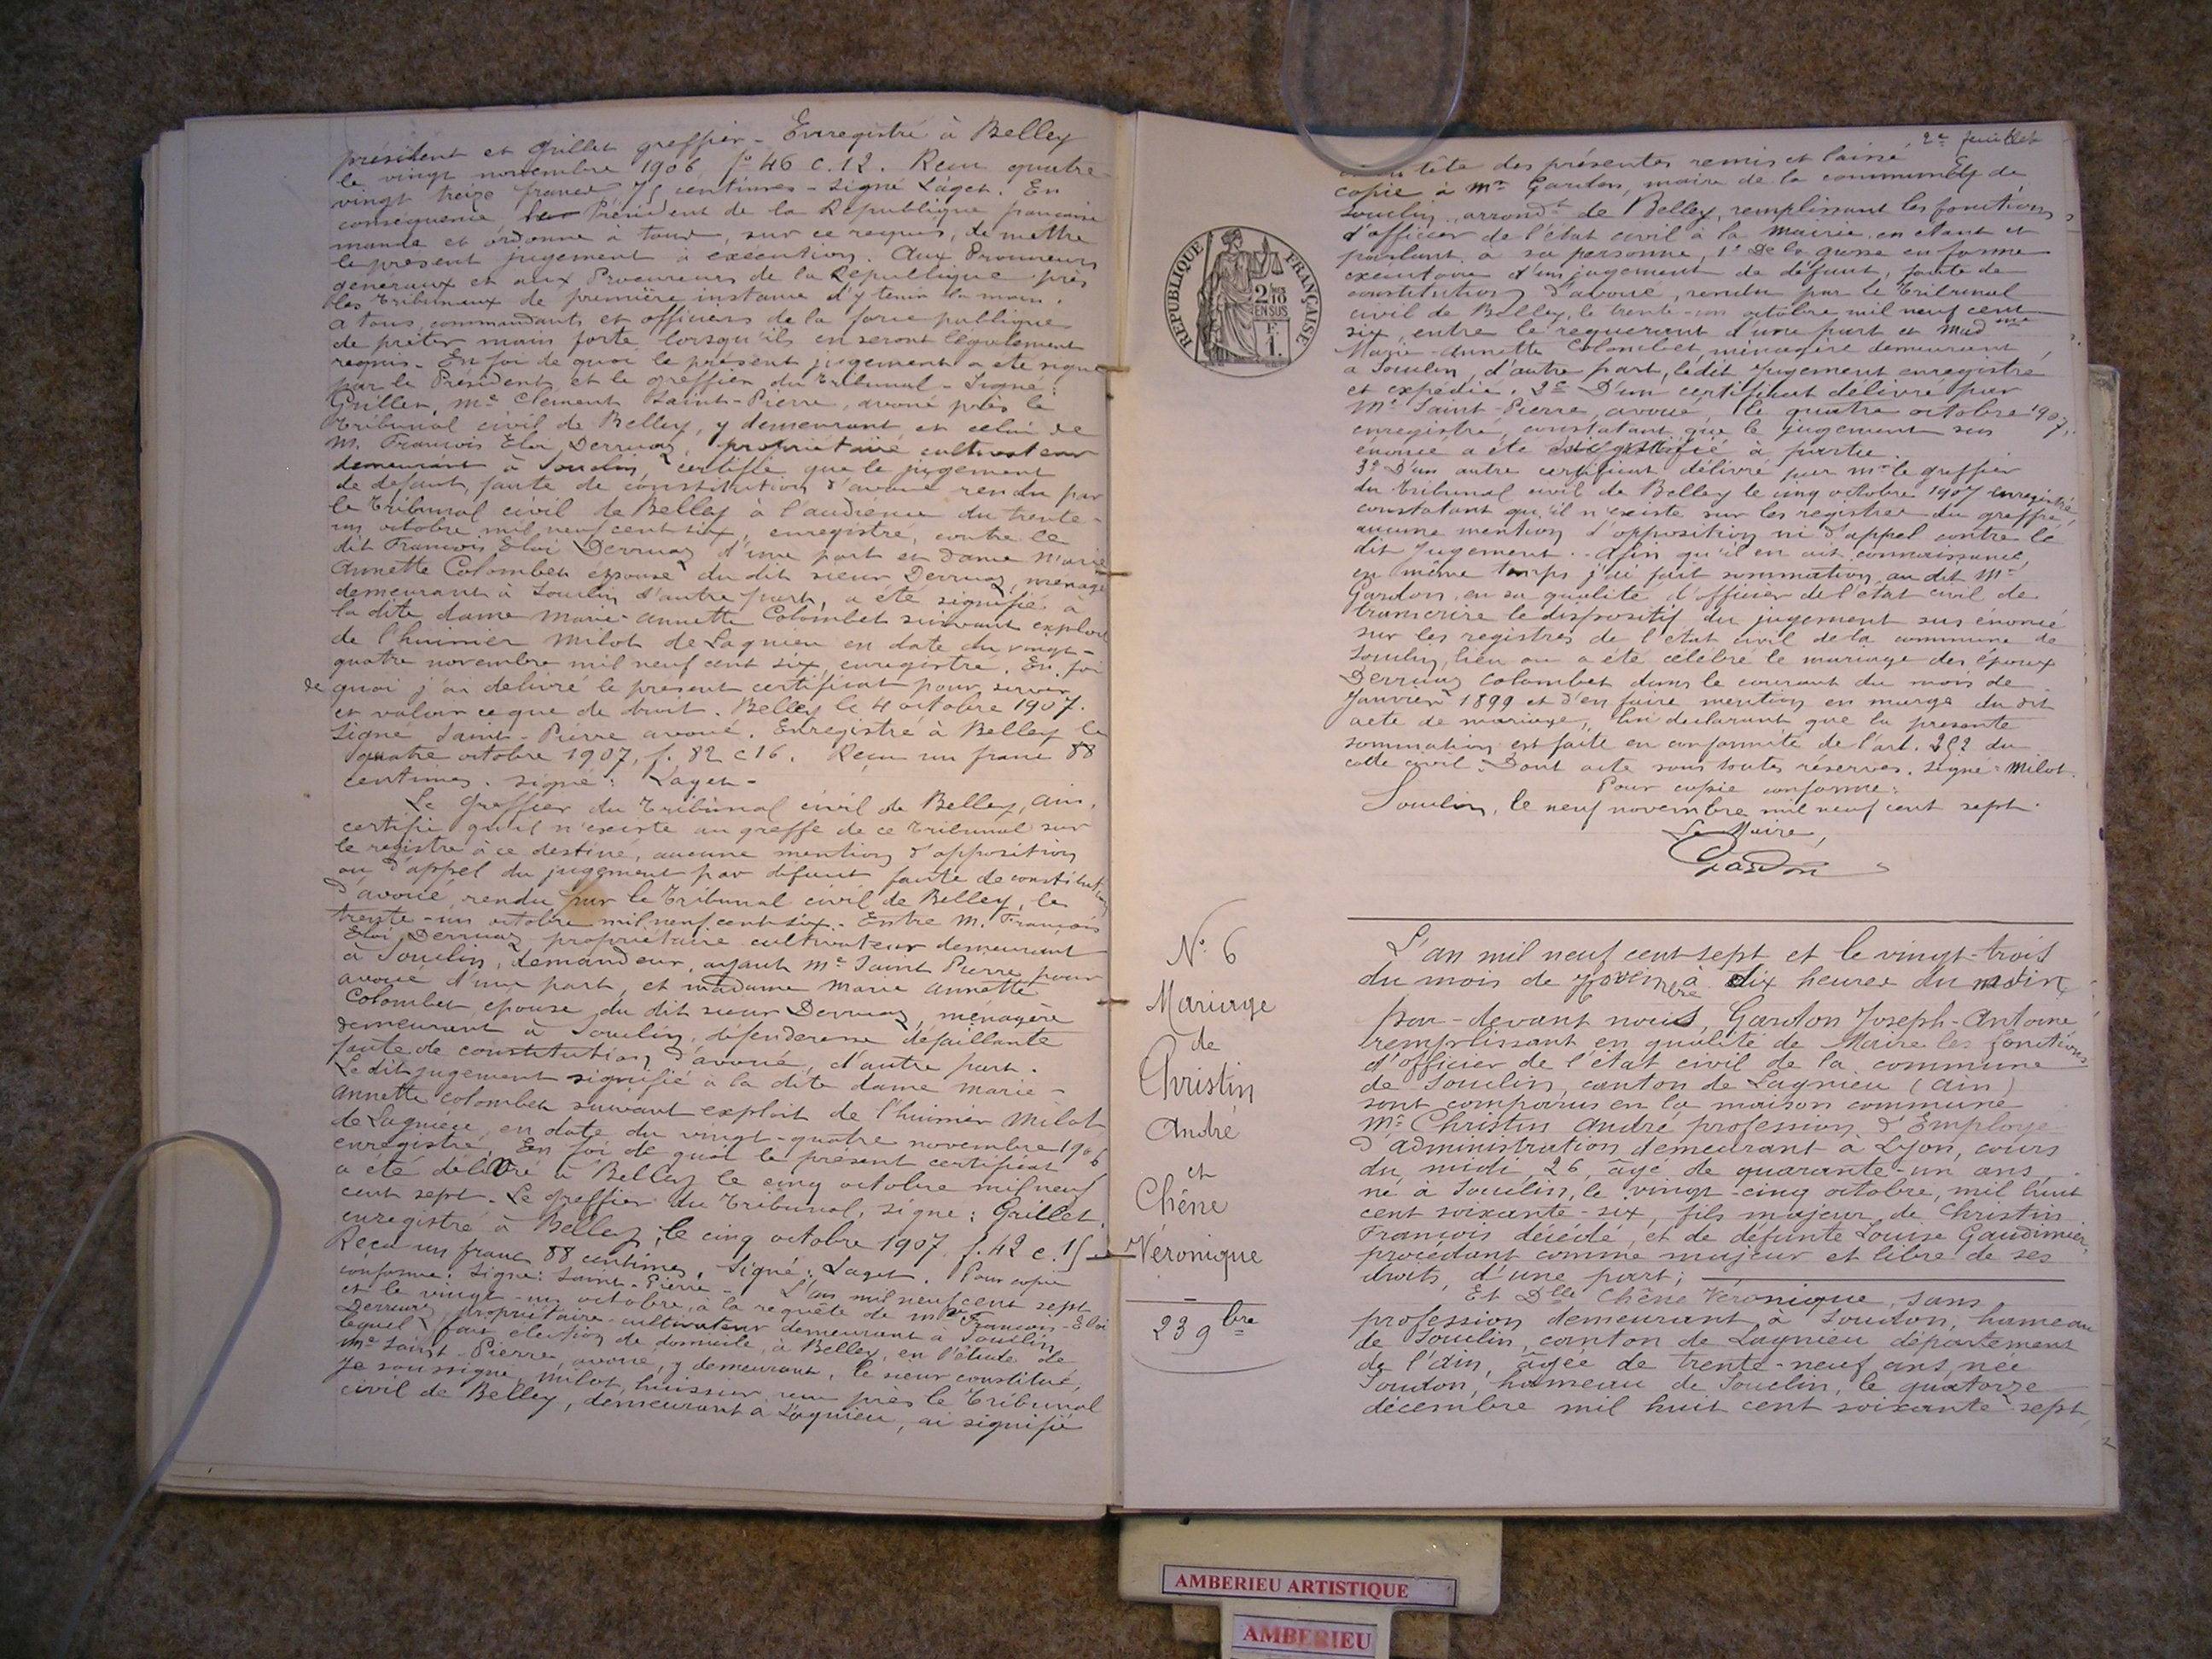 président et Grillet greffier - Enregistré à Belley
le vingt novembre 1906 f° 46 c. 12. Reçu quatre
vingt treize francs 75 centimes - signé Laget. En
conséquence le Président de la République française
mande et ordonne à tous, sur ce requis, de mettre
le présent jugement à exécution. Aux Procureurs
généraux et aux Procureurs de la République près
les Tribunaux de première instance d'y tenir la main.
a tous commandants et officiers de la force publique
de prêter main forte lorsqu'ils en seront légalement
requis - En foi de quoi le présent jugement a été signé
par le Président et le greffier du Tribunal - Signé :
Grillet, Me Clément Saint-Pierre, avoué près le
Tribunal civil de Belley, y demeurant et celui de
M. François Eloi Derruaz, propriétaire cultivateur
demeurant à Souclin, certifie que le jugement
de défaut, faute de constitution d'avoué rendu par
le Tribunal civil de Belley à l'audience du trente-
un octobre mil neuf cent six, enregistré, contre le
dit François Eloi Derruaz d'une part et dame Marie
Annette Colombet épouse du dit sieur Derruaz, ménagè
demeurant à Souclin d'autre part, a été signifié à
la dite dame Marie-Annette Colombet suivant exploit
de l'huissier Milot de Lagnieu en date du vingt-
quatre novembre mil neuf cent six, enregistré. En foi
de quoi j'ai délivré le présent certificat pour servir
et valoir ce que de droit. Belley le 4 octobre 1907.
Signé Saint-Pierre avoué. Enregistré à Belley le
quatre octobre 1907, f. 82 c 16. Reçu un franc 88
centimes. signé : Laget -
Le Greffier du Tribunal civil de Belley, Ain,
certifie qu'il n'existe au greffe de ce Tribunal sur
le registre à ce destiné, aucune mention d'opposition
ou d'appel du jugement par défaut faute de constitution
d'avoué, rendu par le Tribunal civil de Belley, le
trente-un octobre mil neuf cent-six - Entre M. François
Eloi Derruaz propriétaire cultivateur demeurant
à Souclin, demandeur, ayant Me Saint Pierre pour
avoué d'une part, et madame Marie Annette
Colombet épouse du dit sieur Derruaz, ménagère
demeurant à Souclin, défenderesse défaillante
faute de constitution d'avoué, d'autre part.
Le dit jugement signifié à la dite dame Marie-
Annette Colombet suivant exploit de l'huissier Milot
de Lagnieu, en date du vingt-quatre novembre 1906
enregistré. En foi de quoi le présent certificat
a été délivré à Belley le cinq octobre mil neuf
cent sept. Le Greffier du Tribunal, signé : Grillet.
enregistré à Belley, le cinq octobre 1907. f. 42 c. 15
Reçu un franc 88 centimes. Signé : Laget. Pour copie
conforme : Signé : Saint-Pierre - L'an mil neuf cent sept
et le vingt-un octobre, à la requête de Mr François-Eloi
Derruaz, propriétaire-cultivateur demeurant à Souclin
lequel fait élection de domicile, à Belley, en l'étude de
Me Saint-Pierre, avoué, y demeurant, le sieur constitué,
Je soussigné Milot, huissier reçu près le Tribunal
civil de Belley, demeurant à Lagnieu, ai signifié
2e feuillet
tête des présentes remis et laissé
copie à Mr Gardon, maire de la commune de
Souclin, arrondt de Belley, remplissant les fonctions
d'officier de l'état civil à la Mairie en étant et
parlant à sa personne, 1° De la grosse en forme
exécutoire d'un jugement de défaut, faute de
constitution d'avoué, rendu par le Tribunal
civil de Belley, le trente-un octobre mil neuf cent
six, entre le requérant d'une part et Madme
Marie-Annette Colombet, ménagère demeurant
à Souclin, d'autre part, ledit jugement enregistré
et expédié. 2° D'un certificat délivré par
Me Saint-Pierre, avoué, le quatre octobre 1907,
enregistré, constatant que le jugement sus
énoncé a été signifié à partie.
3° D'un autre certificat délivré par Mr le greffier
du tribunal civil de Belley le cinq octobre 1907 enregistré
constatant qu'il n'existe sur les registres du greffe,
aucune mention d'opposition ni d'appel contre le
dit Jugement. - Afin qu'il en ait connaissance,
en même temps j'ai fait sommation au dit Mr
Gardon, en sa qualité d'officier de l'état civil de
transcrire le dispositif du jugement sus énoncé
sur les registres de l'état civil de la commune de
Souclin, lieu où a été célébré le mariage des époux
Derruaz Colombet dans le courant du mois de
Janvier 1899 et d'en faire mention en marge du dit
acte de mariage, lui déclarant que la présente
sommation est faite en conformité de l'art. 252 du
code civil. Dont acte sous toutes réserves. Signé : Milot.
Pour copie conforme :
Souclin, le neuf novembre mil neuf cent sept.
Le Maire,
Gardon
REPUBLIQUE FRANÇAISE
2/10 EN SUS
F.
1.
N° 6
Mariage
de
Christin
André
et
Chêne
Véronique
23 9bre
L'an mil neuf cent-sept et le vingt-trois
du mois de Novembre à dix heures du matin
par-devant nous, Gardon Joseph-Antoine
remplissant en qualité de Maire les fonctions
d'officier de l'état civil de la commune
de Souclin, canton de Lagnieu (Ain)
sont comparus en la maison commune
Mr Christin André profession d'Employé
d'administration demeurant à Lyon, cours
du midi, 26, âgé de quarante-un ans,
né à Souclin, le vingt-cinq octobre, mil huit
cent soixante-six, fils majeur de Christin
François décédé, et de défunte Louise Gaudinier,
procédant comme majeur et libre de ses
droits, d'une part ;
Et Dlle Chêne Véronique, sans
profession demeurant à Soudon, hameau
de Souclin, canton de Lagnieu département
de l'Ain, âgée de trente-neuf ans, née
Soudon, hameau de Souclin, le quatorze
décembre mil huit cent soixante-sept,
AMBERIEU ARTISTIQUE
AMBERIEU